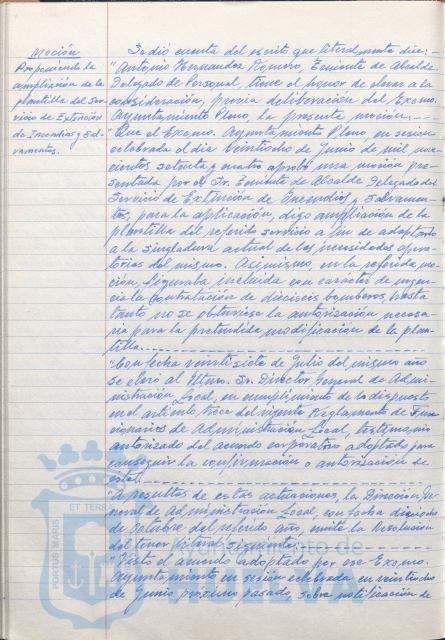 Moción
Proponiendo la
ampliación de la
plantilla del Ser-
vicio de Extinción
de Incendios y Sal-
vamentos.
Se dió cuenta del escrito que literalmente dice:
"Antonio Hernandez Romero, Teniente de Alcalde
Delegado de Personal, tiene el honor de elevar a la
consideración, previa deliberación del Excmo.
Ayuntamiento Pleno, la presente moción.
"Que el Excmo. Ayuntamiento Pleno en sesión
celebrada el dia veintiocho de Junio de mil nove-
cientos setenta y cuatro aprobó una moción pre-
sentada por el Sr. Teniente de Alcalde Delegado del
Servicio de Extinción de Incendios y Salvamen-
tos, para la aplicación, digo ampliación de la
plantilla del referido servicio a fin de adaptarlo
a la singladura actual de las necesidades opera-
torias del mismo. Asimismo, en la referida mo-
ción, figuraba incluida con carácter de urgen-
cia la contratación de dieciseis bomberos, hasta
tanto no se obtuviese la autorización necesa-
ria para la pretendida modificación de la plan-
tilla.
"Con fecha veintisiete de Julio del mismo año
se elevó al Iltmo. Sr. Director General de Admi-
nistración Local, en cumplimiento de lo dispuesto
en el artículo trece del vigente Reglamento de Fun-
cionarios de Administración Local, testimonio
autorizado del acuerdo corporativo adoptado para
conseguir la confirmación o autorización de
éste.
"A resultas de estas actuaciones, la Dirección Ge-
neral de Administración Local, con fecha dieciocho
de Octubre del referido año, emite la Resolución
del tenor literal siguiente:
"Visto el acuerdo adoptado por ese Excmo.
Ayuntamiento en sesión celebrada en veintiocho
de Junio próximo pasado, sobre modificación de
PORTUS MARIS
ET TERRAE
Ayuntamiento de
HUELVA